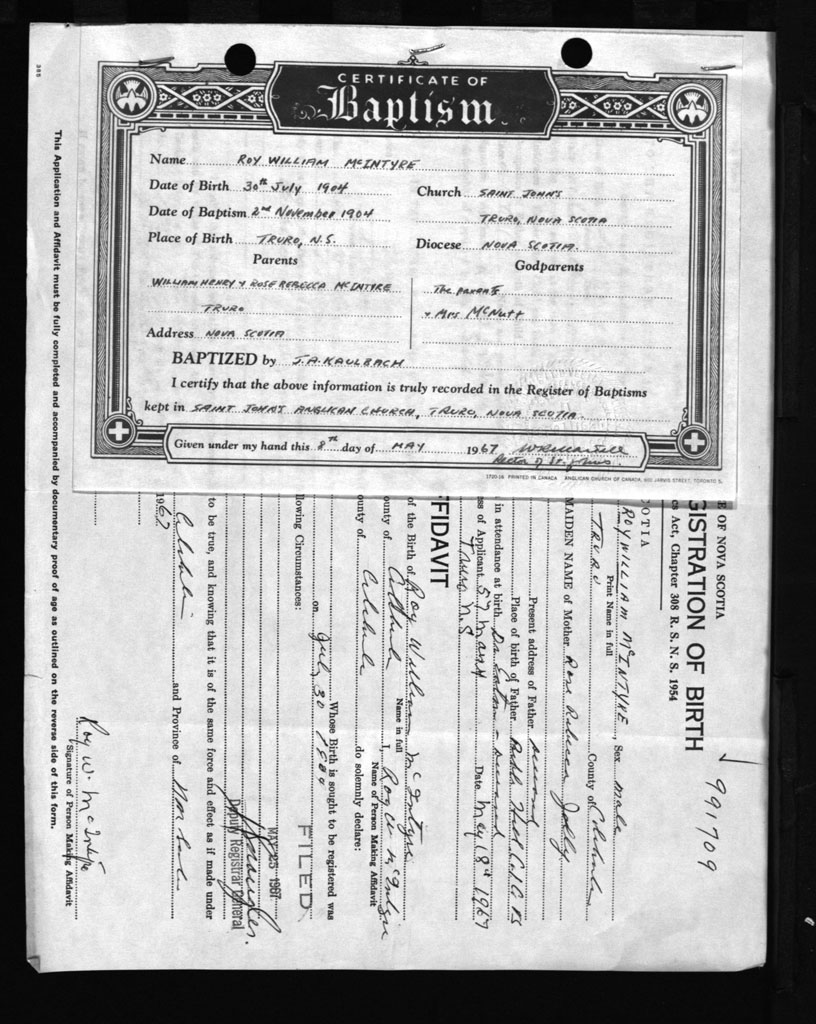 CERTIFICATE OF
Baptism
Name ROY WILLIAM McINTYRE
Date of Birth 30th July 1904
Date of Baptism 2nd November 1904
Place of Birth TRURO, N.S.
Parents
WILLIAM HENRY & ROSE REBECCA McINTYRE
TRURO
Address NOVA SCOTIA
Church SAINT JOHN'S
TRURO, NOVA SCOTIA
Diocese NOVA SCOTIA.
Godparents
The parents
& Mrs McNutt
BAPTIZED by J.A. KAULBACH
I certify that the above information is truly recorded in the Register of Baptisms
kept in SAINT JOHN'S ANGLICAN CHURCH, TRURO, NOVA SCOTIA.
Given under my hand this 8th day of MAY 1967
Rector of St. John's.
1720-16 PRINTED IN CANADA ANGLICAN CHURCH OF CANADA, 600 JARVIS STREET, TORONTO 5.
991709
E OF NOVA SCOTIA
GISTRATION OF BIRTH
cs Act, Chapter 308 R. S. N. S. 1954
COTIA
ROY WILLIAM McINTYRE, Sex male
Print Name in full
TRURO County of Colchester
MAIDEN NAME of Mother Rose Rebecca Jolly
Present address of Father deceased
Place of birth of Father
in attendance at birth Dr. - deceased
ss of Applicant 57 Date May 18th 1967
Truro N.S
FFIDAVIT
of the Birth of Roy William McIntyre
Name in full
ounty of Colchester I, Roy W McIntyre
Name of Person Making Affidavit
ounty of Colchester do solemnly declare:
Whose Birth is sought to be registered was
on July 30 1904
llowing Circumstances:
FILED
MAY 23 1967
Deputy Registrar General
to be true, and knowing that it is of the same force and effect as if made under
Colchester and Province of Nova Scotia
1967
Roy W. McIntyre
Signature of Person Making Affidavit
This Application and Affidavit must be fully completed and accompanied by documentary proof of age as outlined on the reverse side of this form.